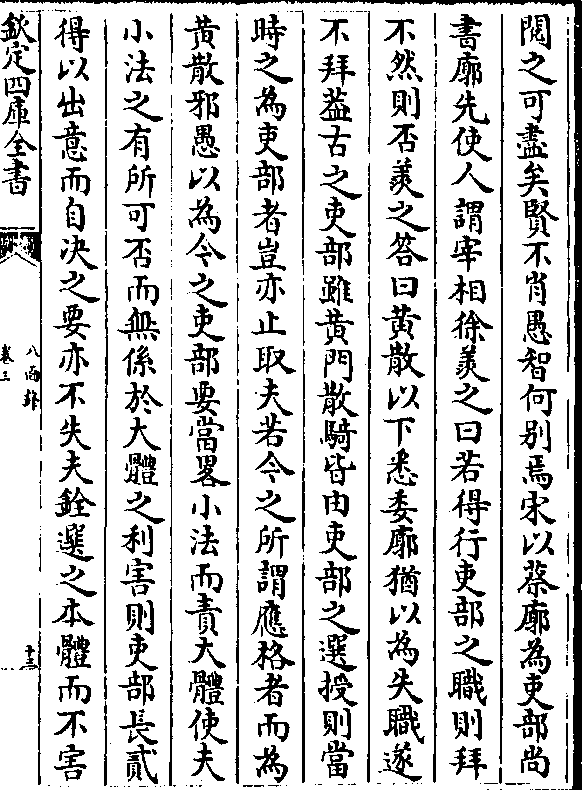 閱之可盡矣賢不肖愚智何别焉宋以蔡廓為吏部尚
書廓先使人謂宰相徐羨之曰若得行吏部之職則拜
不然則否羨之答曰黄散以下悉委廓猶以為失職遂
不拜葢古之吏部雖黄門散騎皆由吏部之選授則當
時之為吏部者豈亦止取夫若今之所謂應格者而為
黄散邪愚以為今之吏部要當畧小法而責大體使夫
小法之有所可否而無係於大體之利害則吏部長貳
得以出意而自决之要亦不失夫銓選之本體而不害
欽定四庫全書
八面鋒
卷三
十三